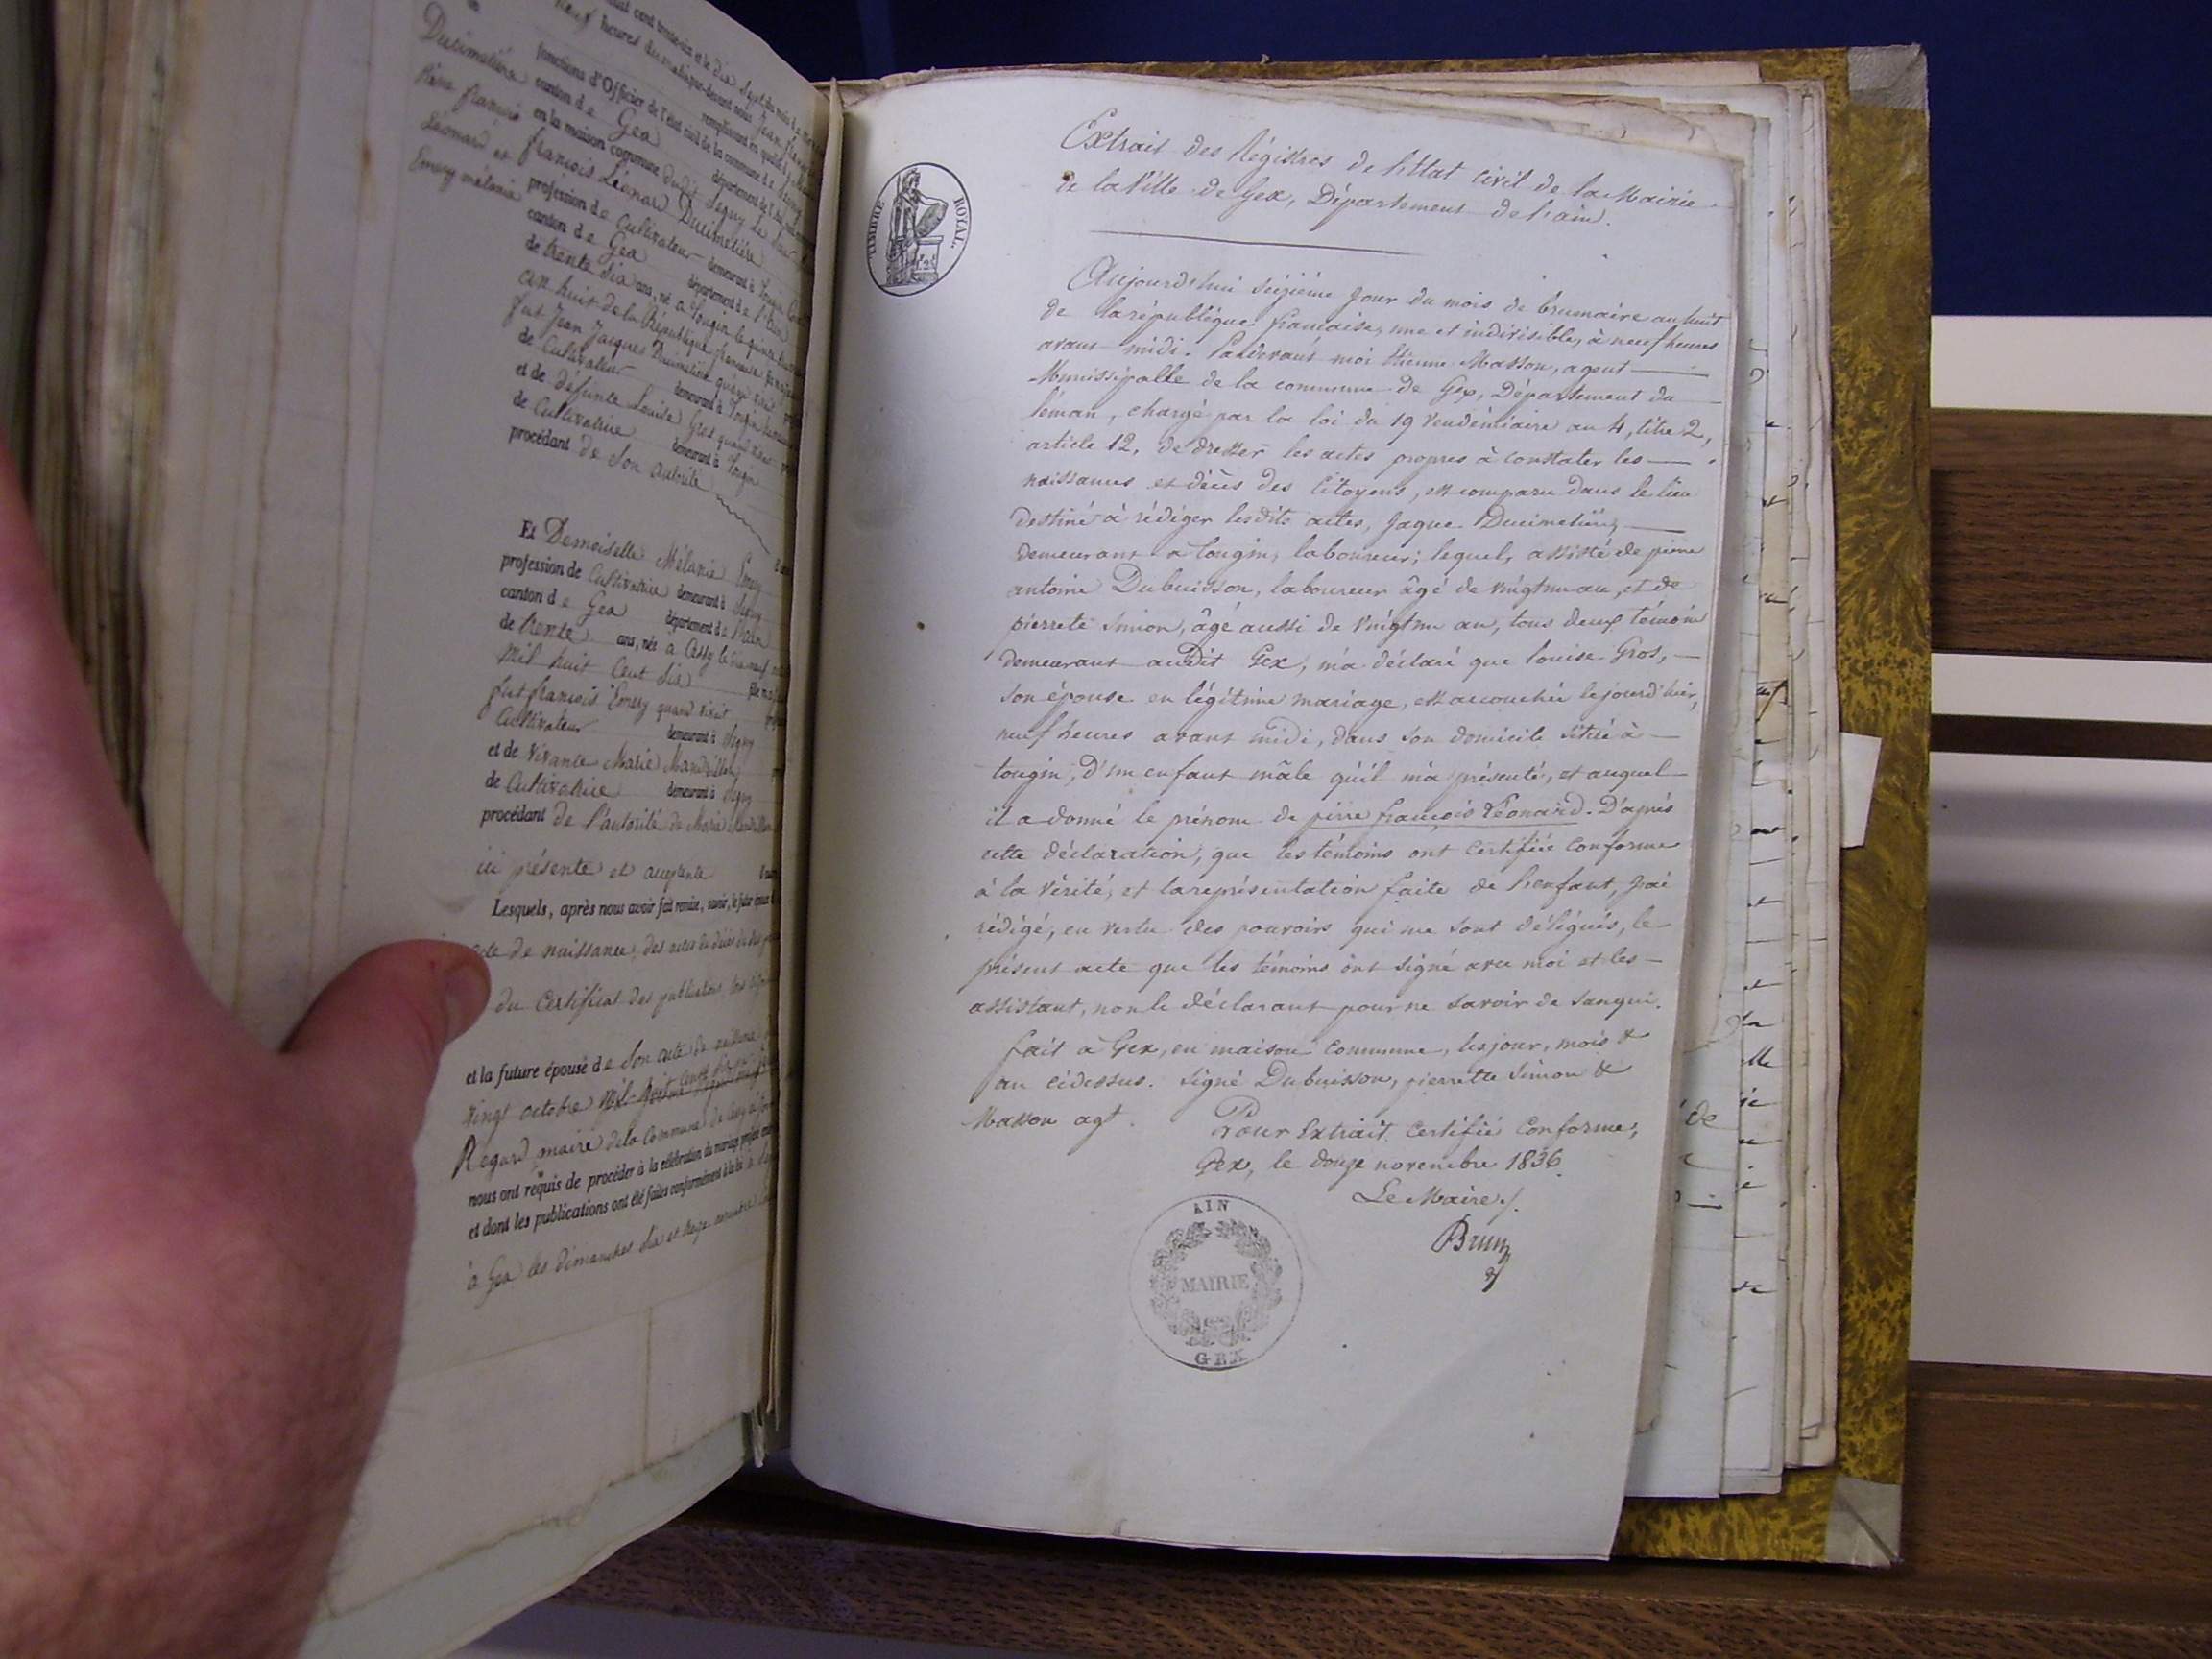 heures du matin, par-devant nous Jean
remplissant en qualité
fonctions d'Officier de l'état civil de la commune de Segny
canton de Gex département de l'Ain
en la maison commune dudit Segny
françois Léonard Ducimetière
profession de Cultivateur demeurant à Tougin
canton de Gex département de l'Ain
de trente six ans, né à Tougin le quinze
an huit de la République française
fut Jean Jacques Ducimetière quand vivait
de Cultivateur demeurant à Tougin
et de défunte Louise Gros quand vivait
de Cultivatrice demeurant à Tougin
procédant de Son autorité
Ducimetière
Pierre françois
Léonard et
Emery mélanie
Et Demoiselle Mélanie Emery
profession de Cultivatrice demeurant à Segny
canton de Gex département de l'ain
de trente ans, née à Cessy le
mil huit Cent six
fut françois Emery quand vivait
Cultivateur demeurant à Segny
et de vivante Marie Mandrillon
de Cultivatrice demeurant à Segny
procédant de l'autorité de Marie Mandrillon
ici présente et acceptante
Lesquels, après nous avoir fait remise, savoir, le futur époux
acte de naissance, des actes de décès de
du Certificat des publications
et la future épouse de Son acte de naissance
vingt octobre
Regard maire de la Commune de
nous ont requis de procéder à la célébration du mariage projeté
et dont les publications ont été faites conformément à la loi
à Gex les dimanches six et treize novembre
TIMBRE ROYAL.
Extrait des Régistres de l'État civil de la Mairie
de la Ville de Gex, Département de l'ain.
Aujourd'hui seizième jour du mois de brumaire an huit
de la république française, une et indivisible, à neuf heures
avant midi. Pardevant moi Etienne Masson, agent
Municipalle de la commune de Gex, Département du
léman, chargé par la loi du 19 Vendémiaire an 4, titre 2,
article 12, de dresser les actes propres à constater les
naissances et décès des Citoyens, est comparu dans le lieu
destiné à rédiger lesdits actes, Jaque Ducimetière
demeurant a tougin, laboureur; lequel, assisté de pierre
antoine Dubuisson, laboureur âgé de vingt un an, et de
pierrete Simon, âgé aussi de vingt un an, tous deux témoin
demeurant audit Gex, m'a déclaré que louise Gros,
son épouse en légitime mariage, est accouchée le jourd'hier,
neuf heures avant midi, dans son domicile situé à
tougin, d'un enfant mâle qu'il m'a présenté, et auquel
il a donné le prénom de pirre françois Léonard. D'après
cette déclaration, que les témoins ont certifiée conforme
à la vérité, et la représentation faite de l'enfant, j'ai
rédigé, en vertu des pouvoirs qui me sont délégués, le
présent acte que les témoins ont signé avec moi et les
assistant, non le déclarant pour ne savoir de sanqui.
fait à Gex, en maison commune, les jour, mois &
an cidessus. signé Dubuisson, pierrette Simon &
Masson agt.
Pour Extrait certifié conforme,
Gex, le douze novembre 1836.
Le Maire,
Brun
AIN
MAIRIE
GEX